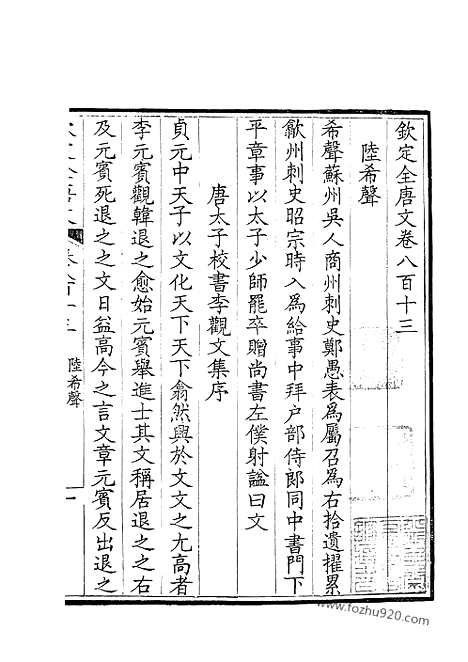 欽定全唐文卷八百十三
陸希聲
希聲蘇州吳人商州刺史鄭愚表為屬召為右拾遺擢累
歙州刺史昭宗時入為給事中拜户部侍郎同中書門下
平章事以太子少師罷卒贈尚書左僕射謚曰文
唐太子校書李觀文集序
貞元中天子以文化天下天下翕然興於文文之尤高者
李元賓觀韓退之愈始元賓舉進士其文稱居退之之右
及元賓死退之之文日益高今之言文章元賓反出退之
陸希聲
一
www.fozhu920.com